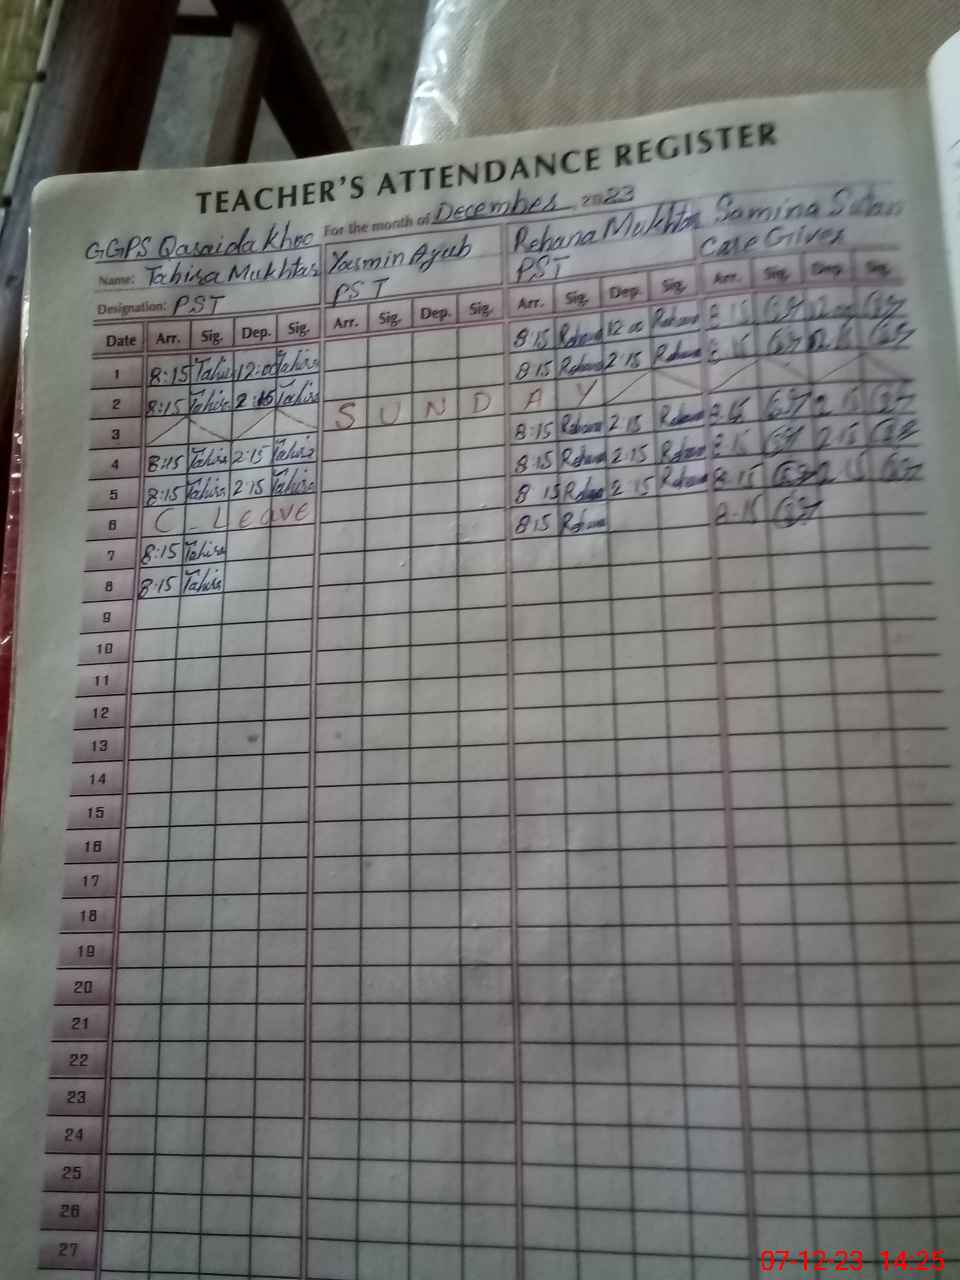 TEACHER'S ATTENDANCE REGISTER
For the month of December 2023
GGPS Qasaida Khoo
Name: Tahira Mukhtar Yasmin Ayub Rehana Mukhtar Samina Sultan
Designation: PST PST PST Care Giver
Date Arr. Sig. Dep. Sig. Arr. Sig. Dep. Sig. Arr. Sig. Dep. Sig. Arr. Sig. Dep. Sig.
1 8:15 Tahira 12:00 Tahira 8:15 Rehana 12:00 Rehana 8:15
2 8:15 Tahira 2:15 Tahira 8:15 Rehana 2:15 Rehana
3 SUNDAY
4 8:15 Tahira 2:15 Tahira 8:15 Rehana 2:15 Rehana 8:15 2:15
5 8:15 Tahira 2:15 Tahira 8:15 Rehana 2:15 Rehana 8:15 2:15
6 C_Leave 8:15 Rehana 2:15 Rehana 8:15 2:15
7 8:15 Tahira 8:15 Rehana 8:15
8 8:15 Tahira
9
10
11
12
13
14
15
16
17
18
19
20
21
22
23
24
25
26
27
07-12-23 14:25